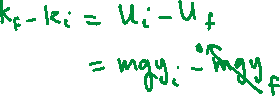 k_f - k_i = U_i - U_f
= mgy_i - mgy_f